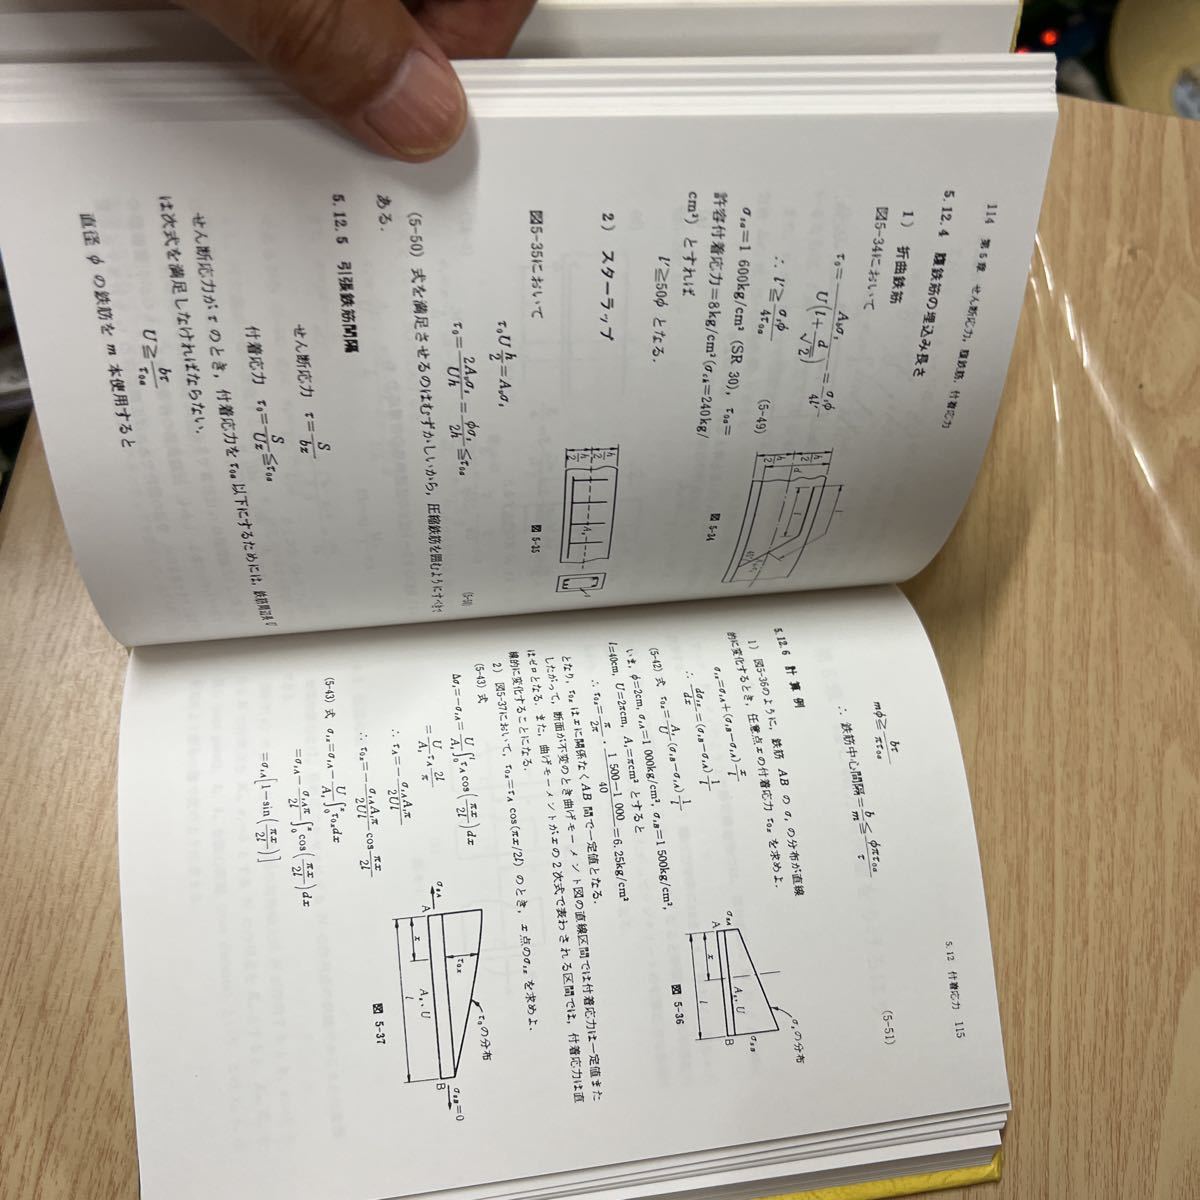 114 第5章 せん断応力,腹鉄筋,付着応力
5.12.4 腹鉄筋の埋込み長さ
1) 折曲鉄筋
図5-34において
τ₀=Aₛσₛ/U(l+d/√2)=σₛφ/4l'
∴ l'≧σₛφ/4τ₀ₐ (5-49)
σₛₐ=1 600kg/cm² (SR 30), τ₀ₐ=
許容付着応力=8kg/cm²(σ_ck=240kg/
cm²) とすれば
l'≧50φ となる.
図 5-34
2) スターラップ
図5-35において
τ₀U h/2=Aₛσₛ
τ₀=2Aₛσₛ/Uh=φσₛ/2h≦τ₀ₐ
図 5-35
(5-50) 式を満足させるのはむずかしいから,圧縮鉄筋を囲むようにすべきで
ある.
5.12.5 引張鉄筋間隔
せん断応力 τ=S/bz
付着応力 τ₀=S/Uz≦τ₀ₐ
せん断応力が τ のとき,付着応力を τ₀ₐ 以下にするためには,鉄筋周辺長 U
は次式を満足しなければならない.
U≧bτ/τ₀ₐ
直径 φ の鉄筋を m 本使用すると
5.12 付着応力 115
mφ≧bτ/πτ₀ₐ
∴ 鉄筋中心間隔=b/m≦φπτ₀ₐ/τ (5-51)
5.12.6 計算例
1) 図5-36のように,鉄筋 AB の σₛ の分布が直線
的に変化するとき,任意点 x の付着応力 τ₀ₓ を求めよ.
σₛₓ=σₛA+(σₛB−σₛA)x/l
∴ dσₛₓ/dx=(σₛB−σₛA)1/l
(5-42) 式 τ₀ₓ=Aₛ/U(σₛB−σₛA)1/l
いま,φ=2cm, σₛA=1 000kg/cm², σₛB=1 500kg/cm²,
l=40cm, U=2πcm, Aₛ=πcm² とすると
∴ τ₀ₓ=π/2π・1 500−1 000/40=6.25kg/cm²
σₛA
A
x
l
Aₛ, U
B
σₛB
σₛの分布
図 5-36
となり,τ₀ₓ は x に関係なく AB 間で一定値となる.
したがって,断面が不変のとき曲げモーメント図の直線区間では付着応力は一定値また
はゼロとなる.また,曲げモーメントが x の2次式で表わされる区間では,付着応力は直
線的に変化することになる.
2) 図5-37において,τ₀ₓ=τA cos(πx/2l) のとき,x 点の σₛₓ を求めよ.
(5-43) 式
Δσₛ=−σₛA=U/Aₛ∫₀ˡτA cos(πx/2l)dx
=U/Aₛ τA 2l/π
∴ τA=−σₛAAₛπ/2Ul
∴ τ₀ₓ=−σₛAAₛπ/2Ul cos πx/2l
(5-43) 式 σₛₓ=σₛA−U/Aₛ∫₀ˣτ₀ₓdx
=σₛA−σₛAπ/2l∫₀ˣcos(πx/2l)dx
=σₛA[1−sin(πx/2l)]
σₛA
A
x
τ₀ₓ
Aₛ, U
l
τ₀の分布
B
σₛB=0
図 5-37